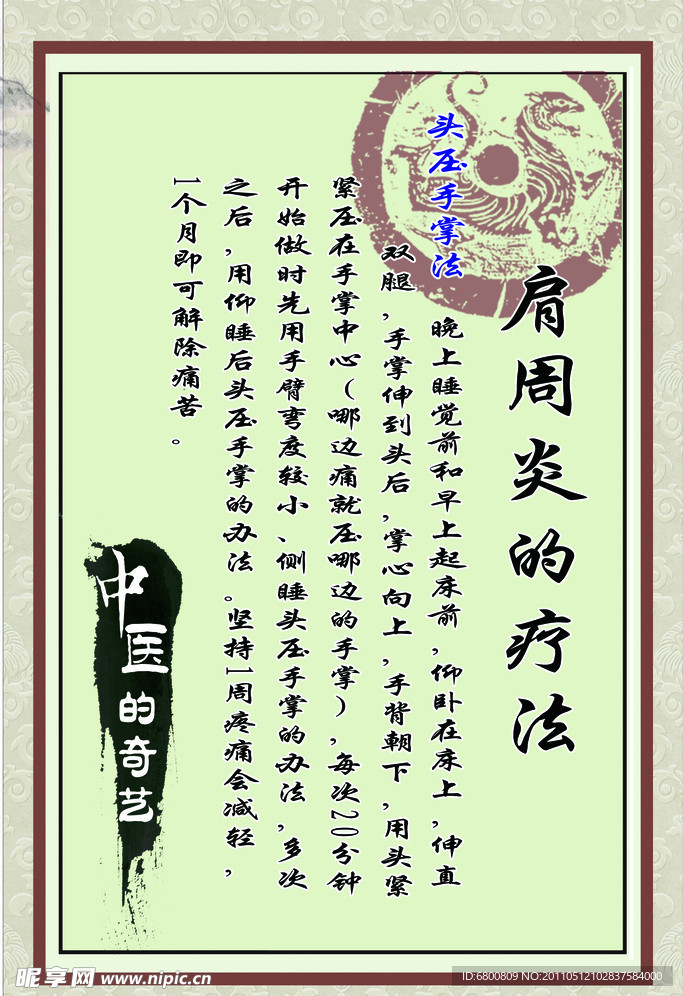 肩周炎的疗法
头压手掌法
晚上睡觉前和早上起床前，仰卧在床上，伸直
双腿，手掌伸到头后，掌心向上，手背朝下，用头紧
紧压在手掌中心（哪边痛就压哪边的手掌），每次20分钟
开始做时先用手臂弯度较小、侧睡头压手掌的办法，多次
之后，用仰睡后头压手掌的办法。坚持1周疼痛会减轻，
1个月即可解除痛苦。
中医的奇艺
昵享网 www.nipic.cn
ID:6800809 NO:20110512102837584000